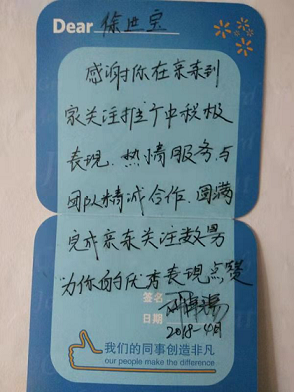 Dear 徐世宝
感谢你在京东到
家关注推广中积极
表现.热情服务与
团队精诚合作.圆满
完成京东关注数另
为你的优秀表现点赞
签名
日期 2018-4月
我们的同事创造非凡
our people make the difference